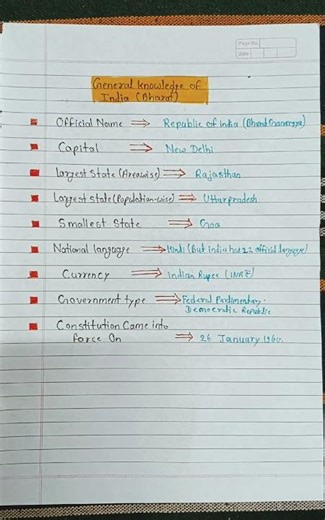 Page No.
Date
General knowledge of
India (Bharat)
Official Name ⇒ Republic of India (Bharat Ganarajya)
Capital ⇒ New Delhi
Largest State (Areawise) ⇒ Rajasthan
Largest state (Population-wise) ⇒ Uttarpradesh
Smallest State ⇒ Goa
National language ⇒ Hindi (But india has 22 official language)
Currency ⇒ Indian Rupee (INR ₹)
Government type ⇒ Federal Parlimentary
Democratic Republic
Constitution Came into
force On ⇒ 26 January